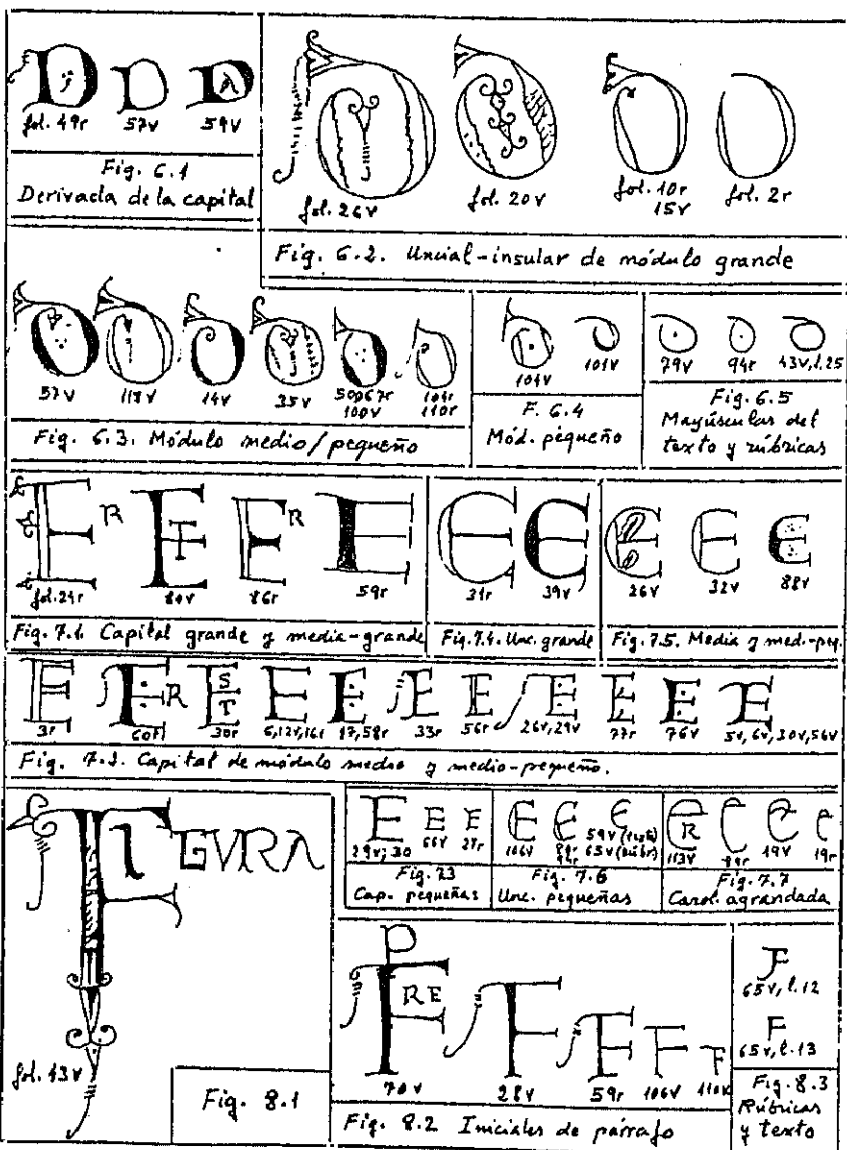 fol. 49r 57v 59v
Fig. 6.1
Derivada de la capital
fol. 26v fol. 20v fol. 10r fol. 2r
15v
Fig. 6.2. Uncial-insular de módulo grande
57v 118v 14v 35v 50v 67r 104r
100v 110r
Fig. 6.3. Módulo medio/pequeño
101v 101v
F. 6.4
Mód. pequeño
79v 94r 43v, l.25
Fig. 6.5
Mayúsculas del
texto y rúbricas
E R E T E R E
fol. 29r 84v 86r 59r
Fig. 7.1. Capital grande y media-grande
E E
31r 39v
Fig. 7.4. Unc. grande
E E E
26v 32v 88v
Fig. 7.5. Media y med.-peq.
E E R E S T E E E E E E E E
3r 60r 30r 6,12v,16r 17,58r 33r 56r 26v,29v 77r 76v 5v,6v,30v,56v
Fig. 7.2. Capital de módulo medio y medio-pequeño.
FIGVRA
fol. 43v
Fig. 8.1
E E E
29v; 30 66v 27r
Fig. 7.3
Cap. pequeñas
E E E
106v 59v (texto)
65v (rúbr)
Fig. 7.6
Unc. pequeñas
E R E E E
113v 19v 19r
Fig. 7.7
Carol. agrandada
P
F RE F F F F
70v 28v 59r 106v 110v
Fig. 8.2 Iniciales de párrafo
F
65v, l.12
F
65v, l.13
Fig. 8.3
Rúbricas
y texto